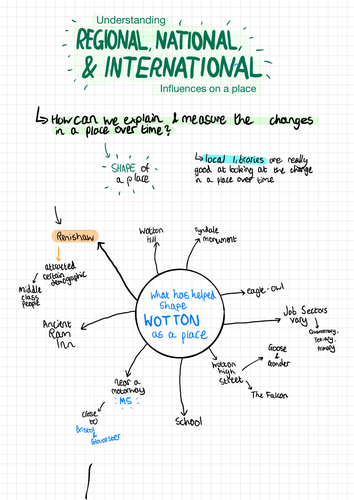 Understanding
REGIONAL, NATIONAL,
& INTERNATIONAL
Influences on a place
How can we explain & measure the changes
in a place over time?
SHAPE of
a place
local libraries are really
good at looking at the change
in a place over time
Renishaw
attracted
certain
demographic
Middle
class
people
Wotton
Hill
Tyndale
monument
eagle-owl
Job Sectors
vary
Quaternary,
Tertiary,
Primary
What has helped
shape
WOTTON
as a place
Ancient
Ram
Inn
Near a
motorway
M5
Close
to
Bristol
&
Gloucester
School
Wotton
high
Street
Goose
&
Gander
The Falcon